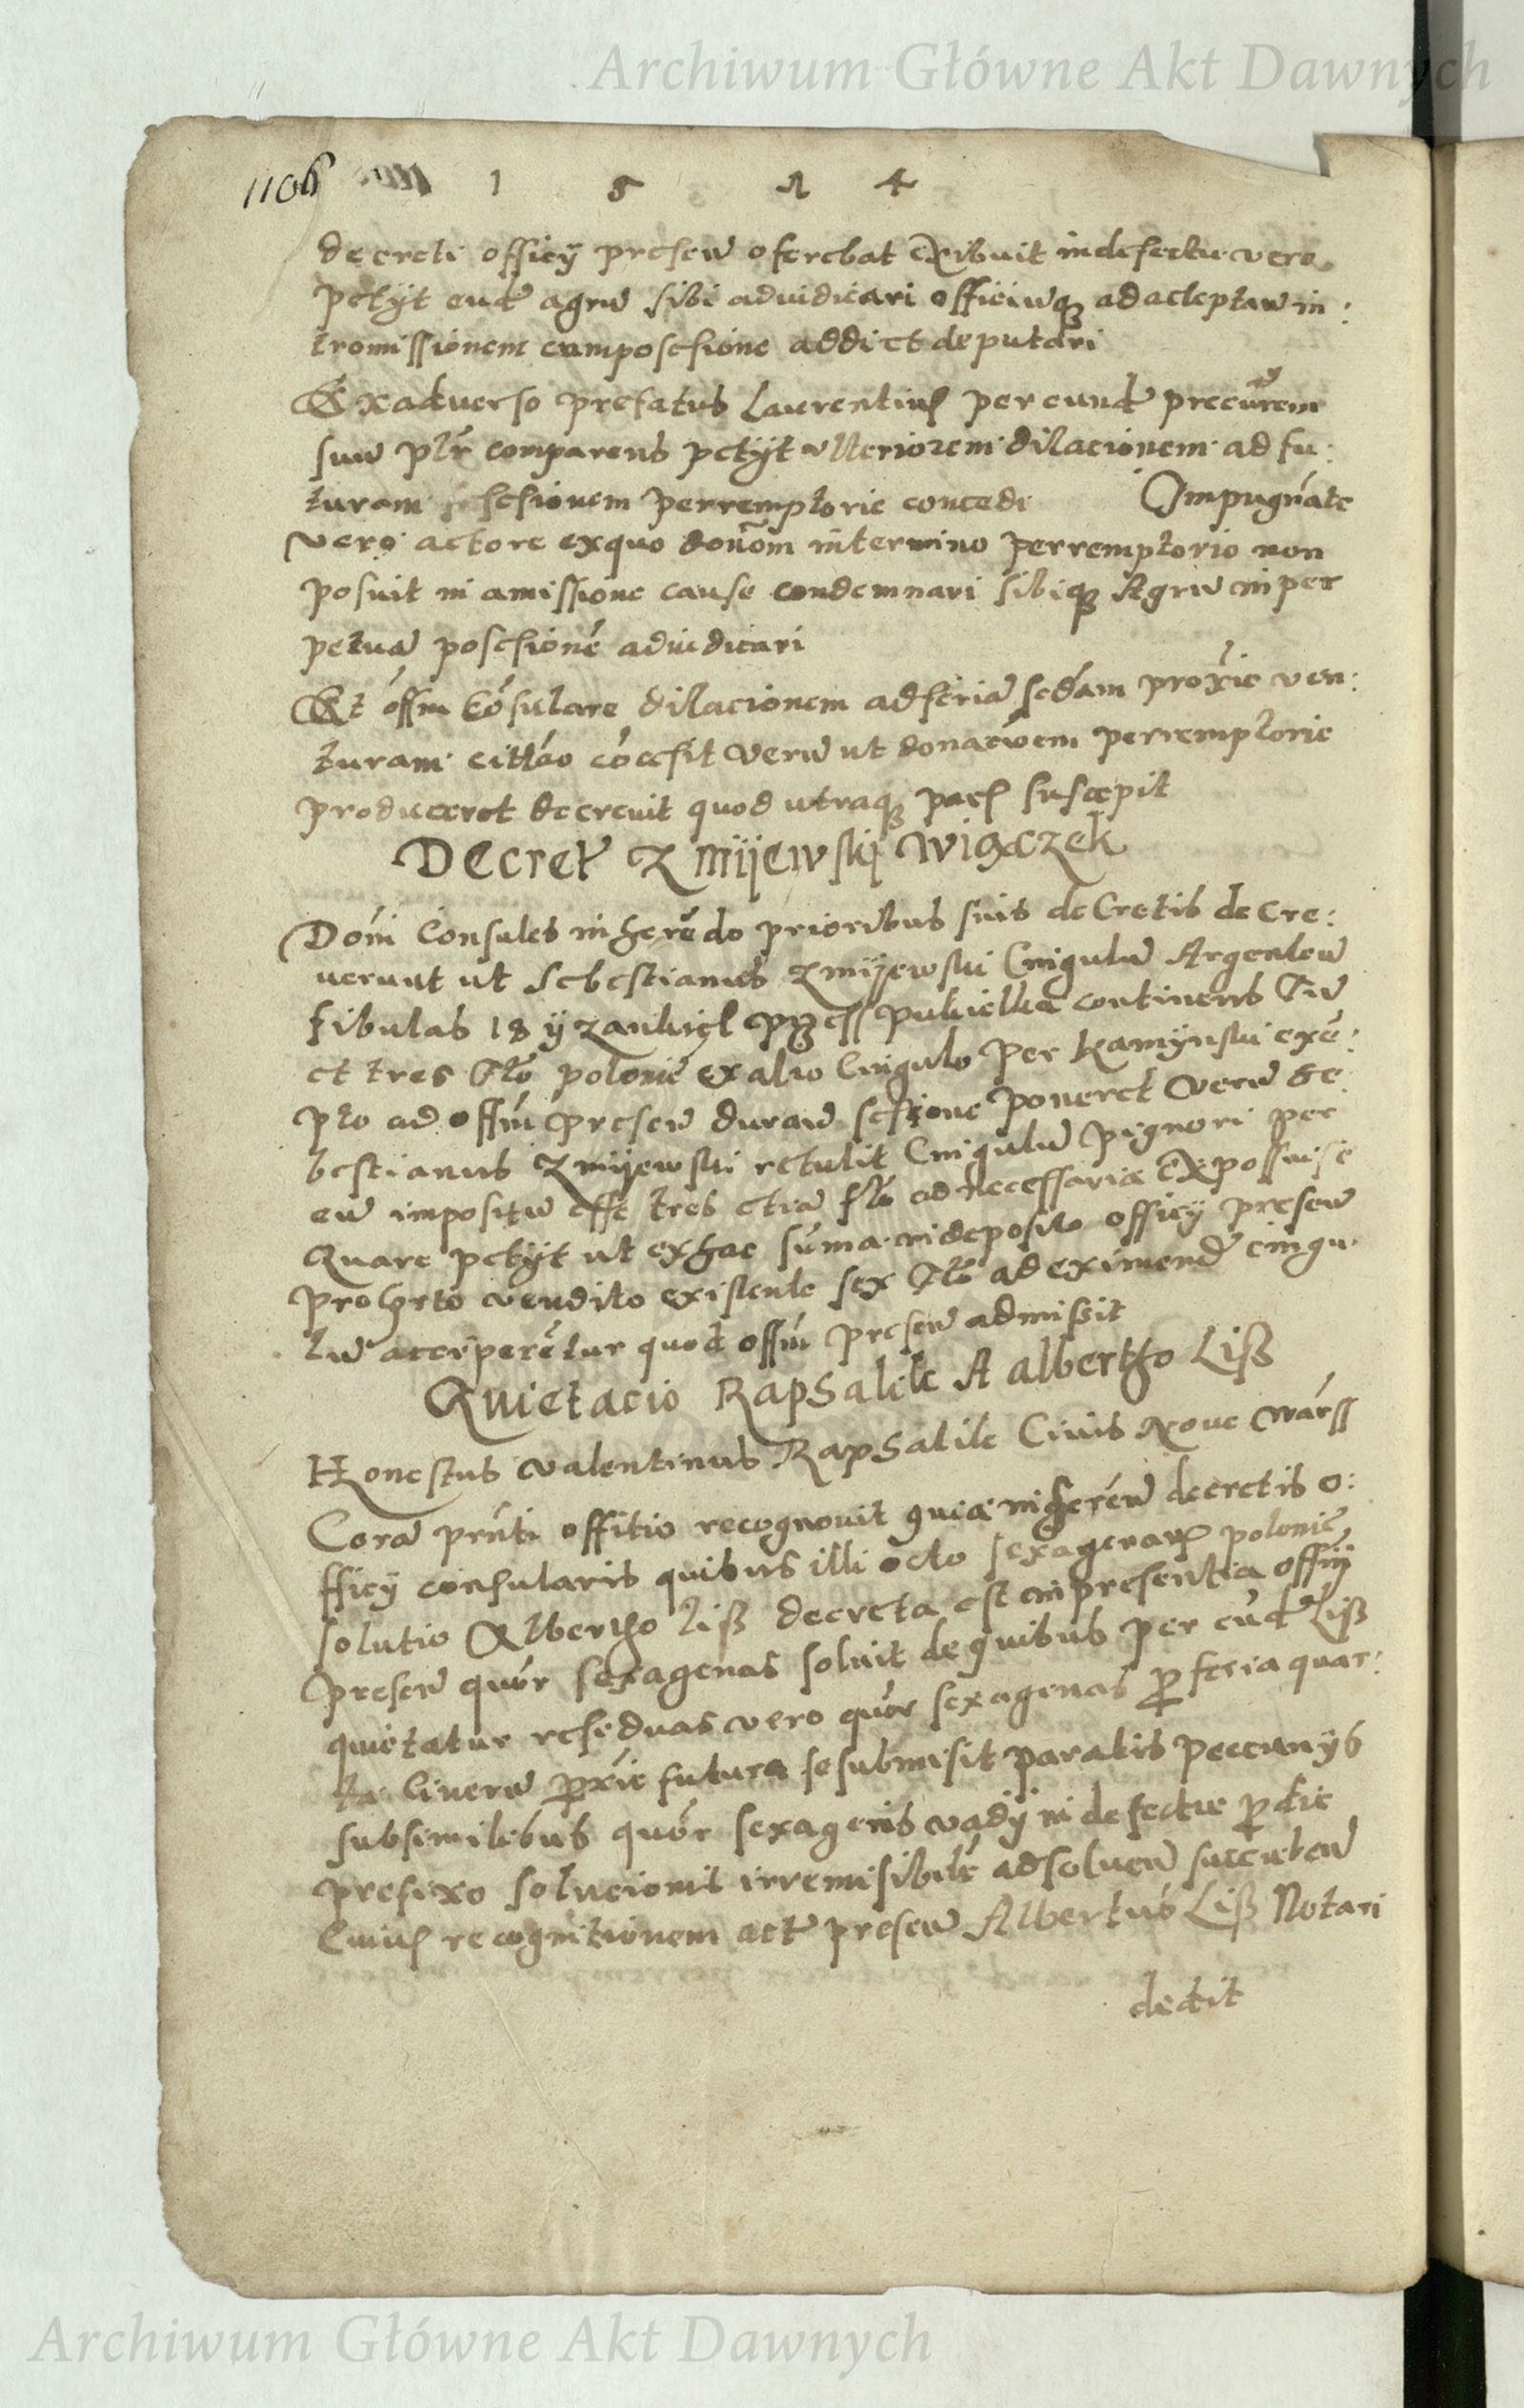 Archiwum Główne Akt Dawnych
1106 1 5 7 4
decreti officÿ presen̄ oferebat exibuit in defectu vero
petÿt eund̄ agrū sibi adiudicari officiūq̧ ad acceptan̄ in:
tromissionem cum posesione addi et deputari
Ex adverso prefatus Laurentiuſ per eund̄ precūrem
suū pl̄r comparens petÿt ulteriorem dilacionem ad fu:
turam sesionem perremptorie concedi Impugnāte
vero actore ex quo donōm in termino perremptorio non
posuit in amissione cause condemnari sibiq̧ Agrū in per
petuā posesionē adiudicari
Et offm̄ Cōsulare dilacionem ad feriā sed̄am proxīe ven:
turam citt̄eo cōcesit verū ut donacōem perremptorie
produceret decrevit quod utraq̧ parſ suscepit
Decret̄ Zmijewskj Wiączek
Don̄i Consules inherēdo prioribus suis decretis decre:
verunt ut Sebestianus Zmijewski Cingulū Argenteū
fibulas 18 ÿ zankięl pukielka continens
et tres flō polonīc ex alio Cingulo per Kamÿnski exē:
pto ad offm̄ presen̄ duran̄ sesione poneret verū Se
bestianus Zmijewski retulit Cingulū pignori per
eū impositū esse tres etiā flō ad necessaria exposuise
Quare petÿt ut ex hac sum̄a in deposito officÿ presen̄
pro horto vendito existente sex flō ad eximend̄ cingu
lū acciperētur quod offm̄ presen̄ admissit
Quietacio Rapsalile A alberto Liß
Honestus Valentinus Rapsalile Civis Nove Warss
Corā prn̄ti offitio recognovit quia inheren̄ decretis o:
fficÿ consularis quibus illi octo sexagenarꝫ polonīc
solutio Alberto Liß decreta est in presentia offÿ
presen̄ quōr sexagenas solvit de quibus per eūd̄ Liß
quietatur reseduas vero quōr sexagenas ꝓ feria quar:
ta Cinerū proxīe futura se submisit paratis peccunÿs
sub similibus quōr sexagenis vadÿ in defectu ꝓ die
prefixo solucionis irremisibilē ad solven̄ succuben̄
Cuiuſ recognitionem act̄ presen̄ Albertus Liß Notari
dedit
Archiwum Główne Akt Dawnych